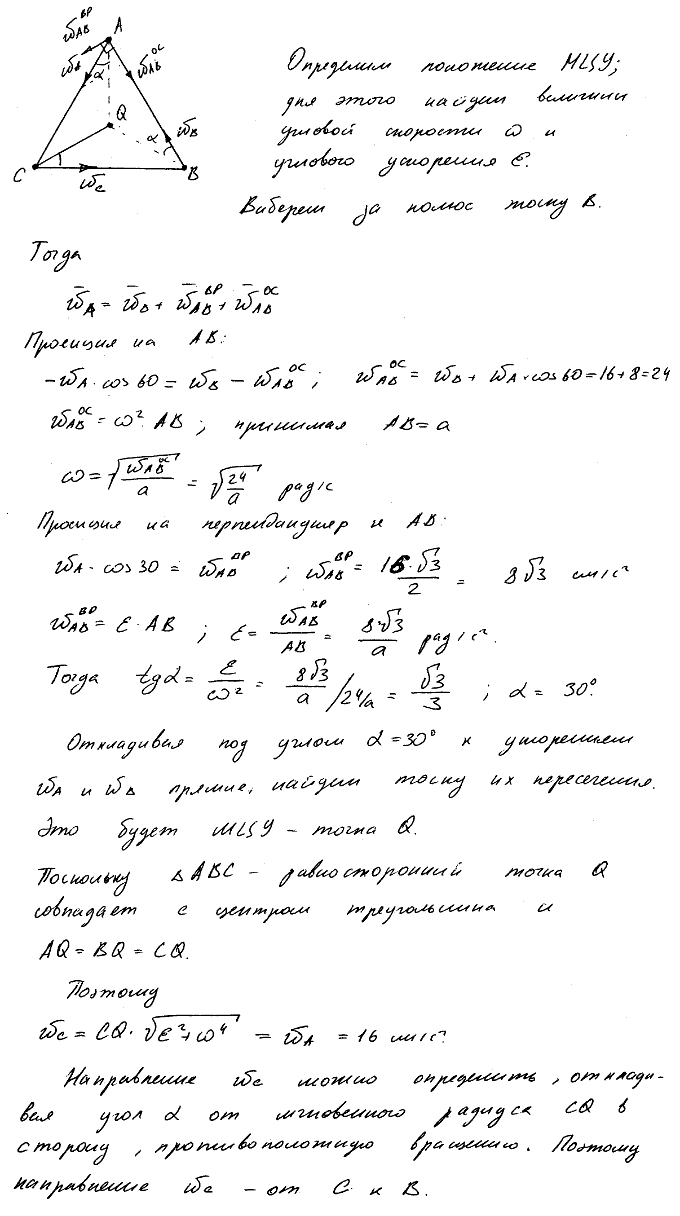 w_AB^ВР A
w_A α w_AB^ОС
Q α w_B
C w_c B
Определим положение МЦУ;
для этого найдем величины
угловой скорости ω и
углового ускорения ε.
Выберем за полюс точку B.
Тогда
w̄_A = w̄_B + w̄_AB^ВР + w̄_AB^ОС
Проекция на AB:
-w_A · cos 60 = w_B - w_AB^ОС ; w_AB^ОС = w_B + w_A · cos 60 = 16 + 8 = 24
w_AB^ОС = ω² AB ; принимая AB = a
ω = √(w_AB^ОС / a) = √(24 / a) рад/с
Проекция на перпендикуляр к AB:
w_A · cos 30 = w_AB^ВР ; w_AB^ВР = 16·√3 / 2 = 8√3 см/с²
w_AB^ВР = ε · AB ; ε = w_AB^ВР / AB = 8√3 / a рад/с².
Тогда tgα = ε / ω² = 8√3 / a / 24/a = √3 / 3 ; α = 30°.
Откладывая под углом α = 30° к ускорениям
w_A и w_B прямые, найдем точку их пересечения.
Это будет МЦУ – точка Q.
Поскольку △ABC – равносторонний точка Q
совпадает с центром треугольника и
AQ = BQ = CQ.
Поэтому
w_c = CQ · √(ε² + ω⁴) = w_A = 16 см/с²
Направление w_c можно определить, откłады-
вая угол α от мгновенного радиуса CQ в
сторону, противоположную вращению. Поэтому
направление w_c – от C к B.